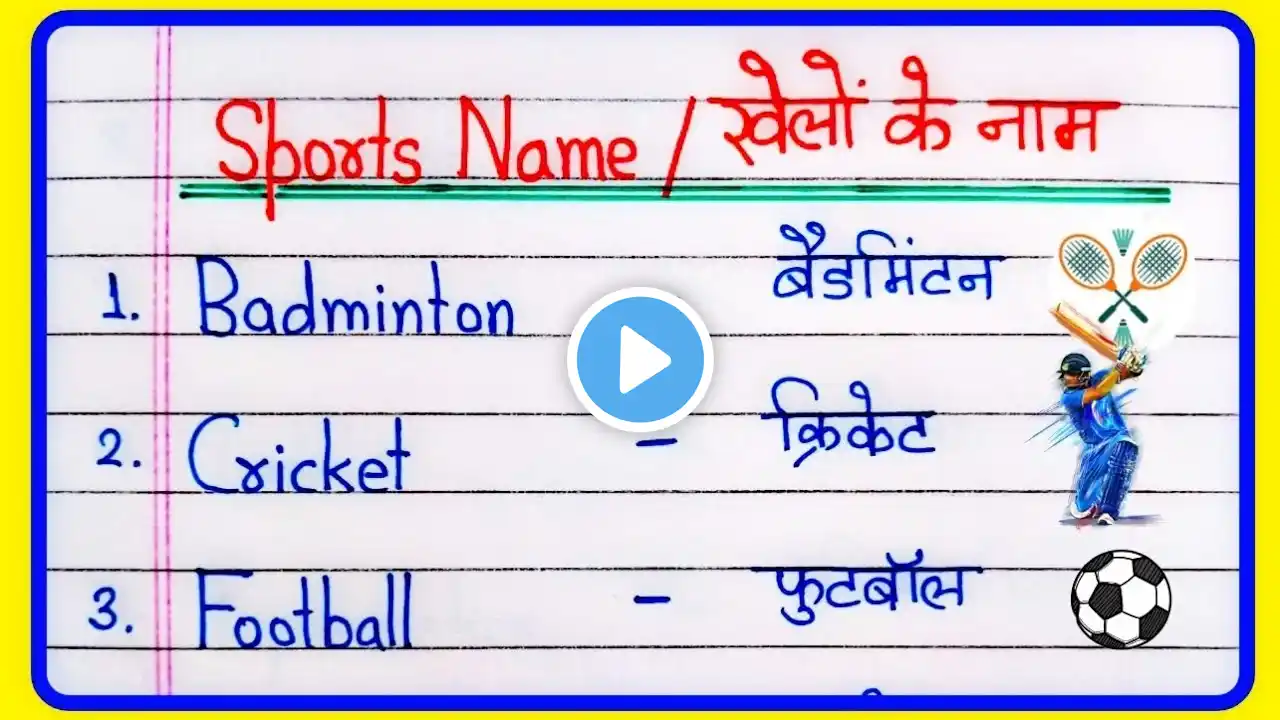 Sports Name / खेलों के नाम
1. Badminton बैडमिंटन
2. Cricket - क्रिकेट
3. Football - फुटबॉल